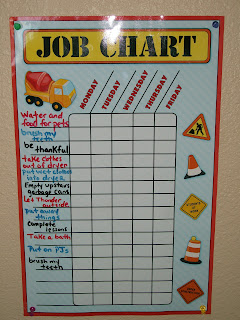 JOB CHART
MONDAY
TUESDAY
WEDNESDAY
THURSDAY
FRIDAY
Water and
food for pets
brush my
teeth
be
thankful
take clothes
out of dryer
put wet clothes
into dryer
Empty upstairs
garbage cans
Let Thunder
outside
put away
things
Complete
lessons
Take a bath
Put on PJs
brush my
teeth